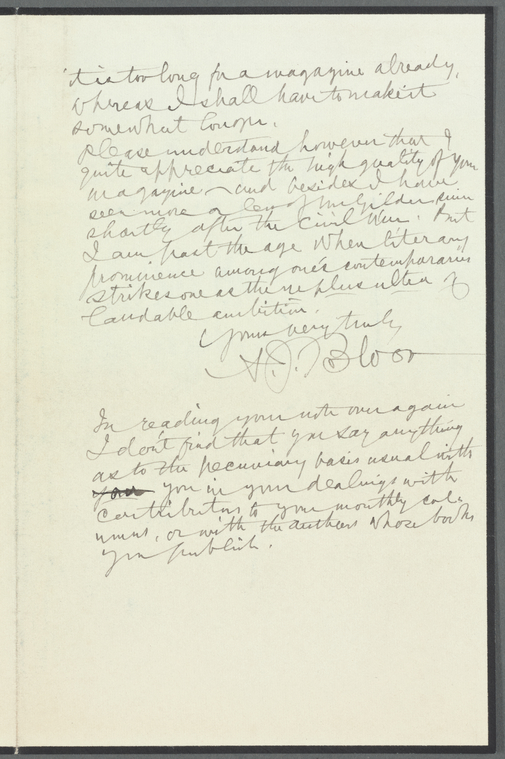 it is too long for a magazine already,
whereas I shall have to make it
somewhat longer.
Please understand however that I
quite appreciate the high quality of your
magazine – and besides I have
seen more or less of Mr Gilder since
shortly after the Civil War. But
I am past the age when literary
prominence among one's contemporaries
strikes one as the ne plus ultra of
laudable ambition.
Yours very truly
A. J. Bloor
In reading your note over again
I don't find that you say anything
as to the pecuniary basis usual with
you in your dealings with
contributors to your monthly col-
umns, or with the authors whose books
you publish.